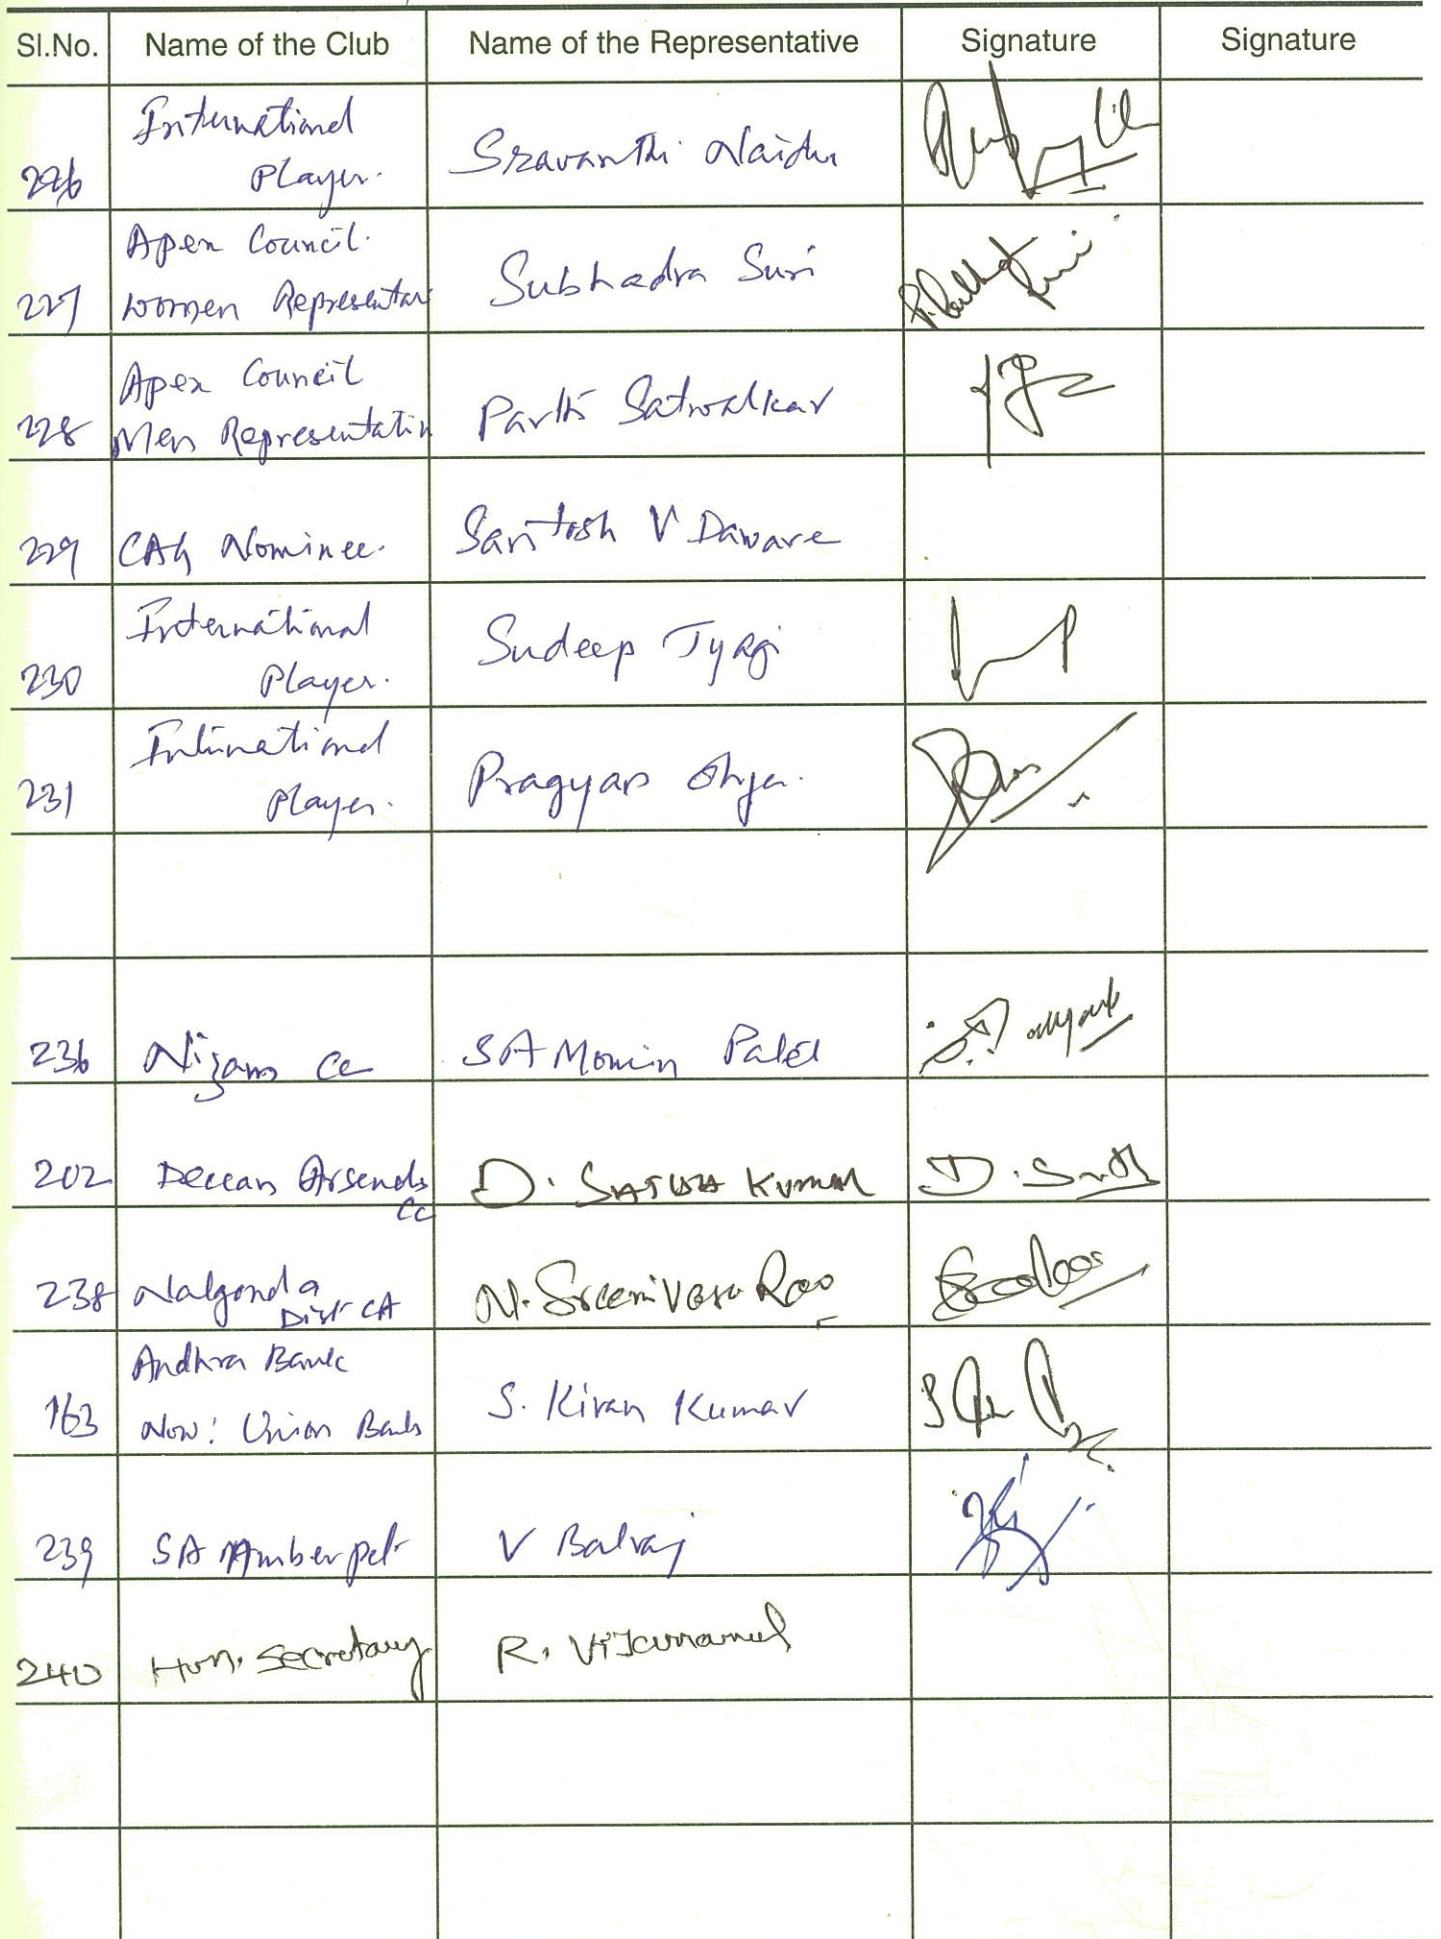 Sl.No. Name of the Club Name of the Representative Signature Signature
International
226 Player. Sravanthi Naidu
Apex Council.
227 Women Representati Subhadra Suri
Apex Council
228 Men Representativ Parth Satwalkar
229 CAG Nominee. Santosh V Daware
International
230 Player. Sudeep Tyagi
International
231 Player. Pragyan Ohja.
236 Nizams CC SA Momin Patel
202 Deccan Arsenals D. SATYA KUMAR
CC
238 Nalgonda N. Sreenivasa Rao
Dist CA
Andhra Bank
163 Now: Union Bank S. Kiran Kumar
239 SA Amberpet V Balraj
240 Hon. Secretary R.